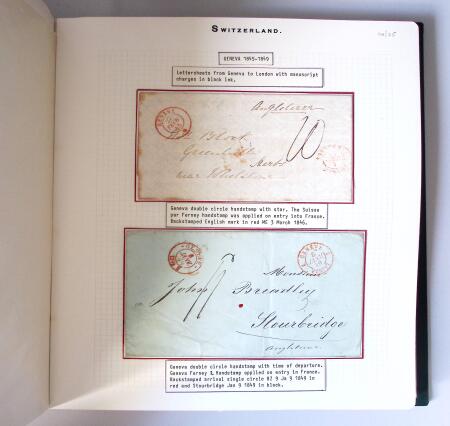 SWITZERLAND.
GENEVA 1845-1849
Lettersheets from Geneva to London with manuscript
charges in black ink.
GENEVE
Angleterre
Block
Greenhill
Herts
near Whetstone
10
Geneva double circle handstamp with star. The Suisse
par Ferney handstamp was applied on entry into France.
Backstamped English mark in red ME 3 March 1846.
GENEVE
Monsieur
John Breadley
Stourbridge
Angleterre
11
Geneva double circle handstamp with time of departure.
Geneva Ferney 1L Handstamp applied on entry in France.
Backstamped arrival single circle BZ 9 Ja 9 1849 in
red and Stourbridge Jan 9 1849 in black.